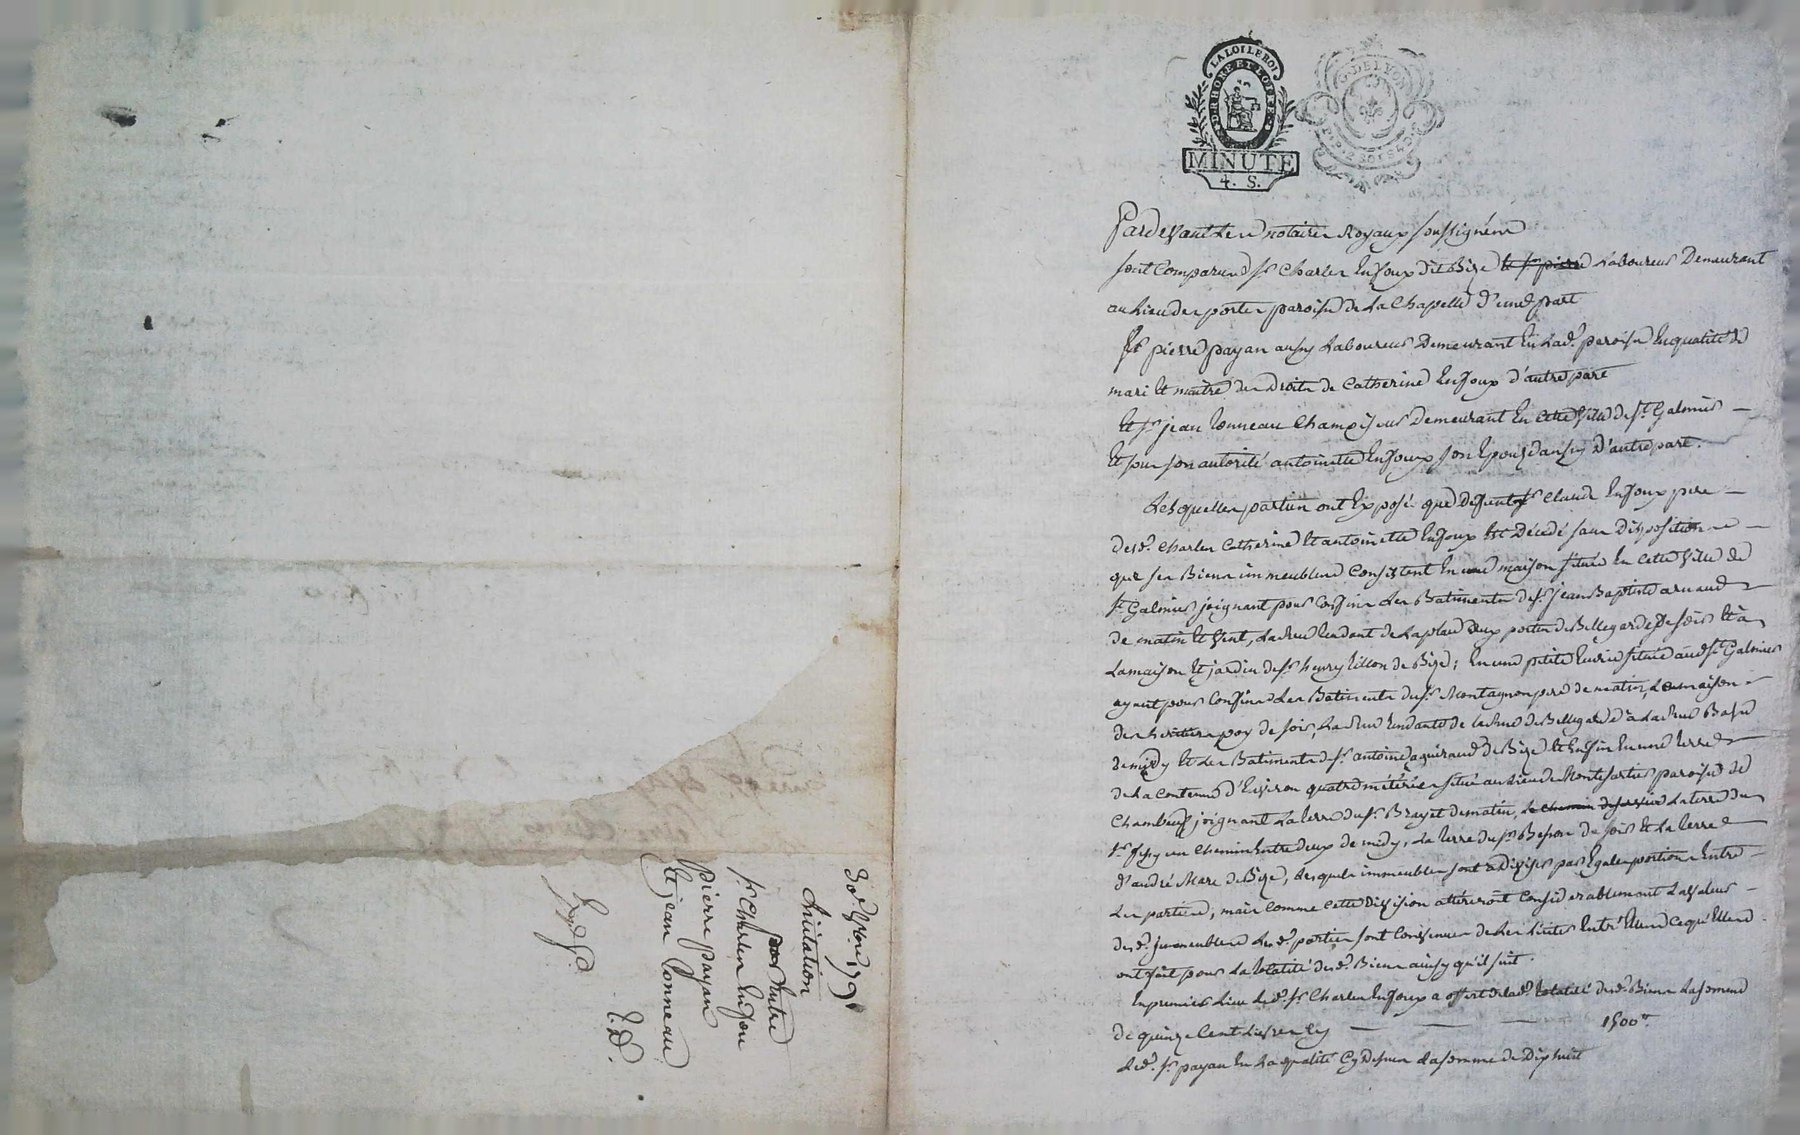 LA LOI LE ROI
D. RHONE ET LOIRE
MINUTE
4. S.
G. DE LYON
Pardevant Les notaires Royaux soussignés
sont Comparus sr. Charles Enjoux dit Bize Laboureur Demeurant
au Lieu des portes paroisse de La Chapelle d'une part
Et pierre payan aussy Laboureur Demeurant En Lad. paroisse En qualité de
mari Et maitre des Droits de Catherine Enjoux d'autre part
Et sr. jean Tonneau Demeurant En Cette ville de St. Galmier
Et sous son autorité antoinette Enjoux son Epouse aussy D'autre part.
Lesquelles parties ont Exposé que Defunt sr. Claude Enjoux pere
desd. Charles Catherine Et antoinette Enjoux Est Décédé sans Disposition
que ses Biens immeubles Consistent En une maison située En Cette ville de
St. Galmier joignant pour Confins Les Batiments de sr. jean Baptiste arnaud
de matin Et vent, La Rue tendant de La place aux portes de Bellegarde De soir Et a
La maison Et jardin de sr. henry de Bize; En une petite Ecurie située aud. St. Galmier
ayant pour Confins Les Batiments du sr. Montagnon pere de matin, La maison
des heritiers poy de soir, La Rue tendante de La Rue de Bellegarde à La Rue Basse
de midy Et Les Batiments de sr. antoine de Bize Et Enfin En une terre
de La Contenue d'Environ quatre méterées située au Lieu de paroisse de
Chambœuf joignant La terre du sr. de matin, Le Chemin La terre du
sr. un Chemin Entre deux de midy, La terre du sr. Besson de soir Et La terre
d'andré Marc de Bize, Lesquels immeubles sont a Diviser par Egales portions Entre
Les parties; mais Comme Cette Division altereroit Considerablement La valeur
desd. immeubles Lesd. parties sont Convenues de Les Liciter Entr'Elles Ce qu'Elles
ont fait pour La totalité desd. Biens ainsy qu'il suit.
En premier Lieu Led. sr. Charles Enjoux a offert de Lad. totalité desd. Biens La somme
de quinze Cent Livres Cy 1500
Led. sr. payan En La qualité Cy Dessus La somme de Dix huit
Licitation
Entre
sr. Charles Enjou
pierre payan
Et jean Tonneau